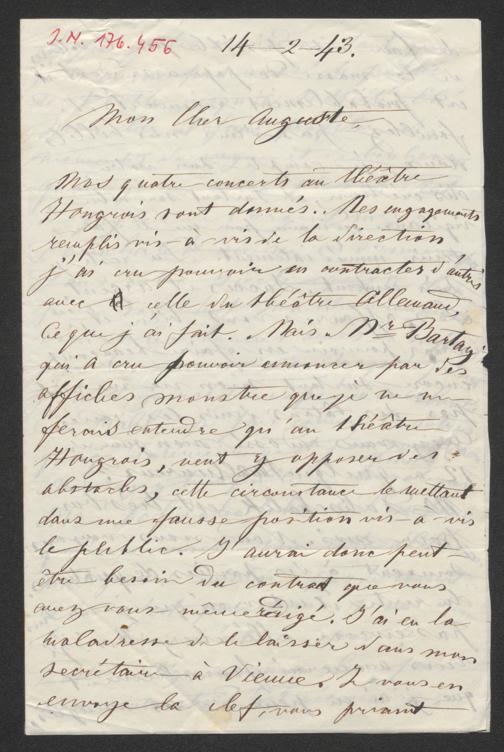 J.N. 176.456
14-2-43.
Mon cher Auguste,
Mes quatre concerts au théâtre
Hongrois sont donnés. Mes engagements
remplis vis-à-vis de la direction
j'ai cru pouvoir en contracter d'autres
avec celle du théâtre Allemand,
Ce que j'ai fait. Mais Mr Bartay
qui a cru pouvoir annoncer par des
affiches monstre que je ne me
ferais entendre qu'au théâtre
Hongrois, veut y opposer des
obstacles, cette circonstance le mettant
dans une fausse position vis-à-vis
le public. J'aurai donc peut-
être besoin du contrat que vous
avez vous même rédigé. J'ai eu la
maladresse de le laisser dans mon
secrétaire à Vienne. Je vous en
envoye la clef, vous priant